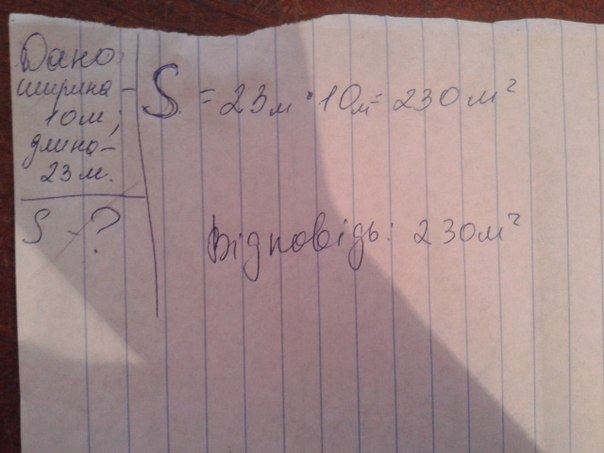 Дано
ширина –
10м;
длина –
23м.
S – ?
S = 23м · 10м = 230м²
Відповідь: 230м²